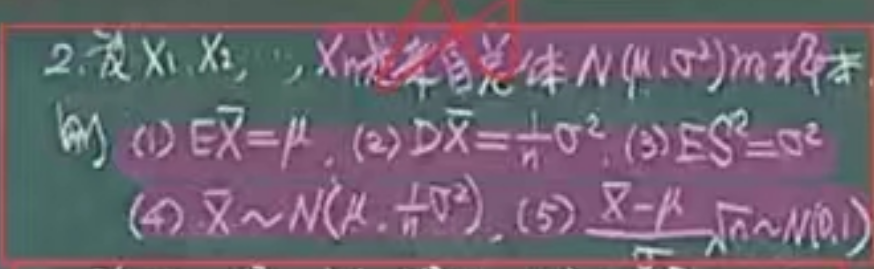 2. 设 X₁, X₂, ⋯, Xₙ是来自总体 N(μ, σ²) 的样本,
则 (1) EX̄=μ, (2) DX̄=1/n σ², (3) ES²=σ²
(4) X̄~N(μ, 1/n σ²), (5) X̄-μ/σ √n~N(0,1)